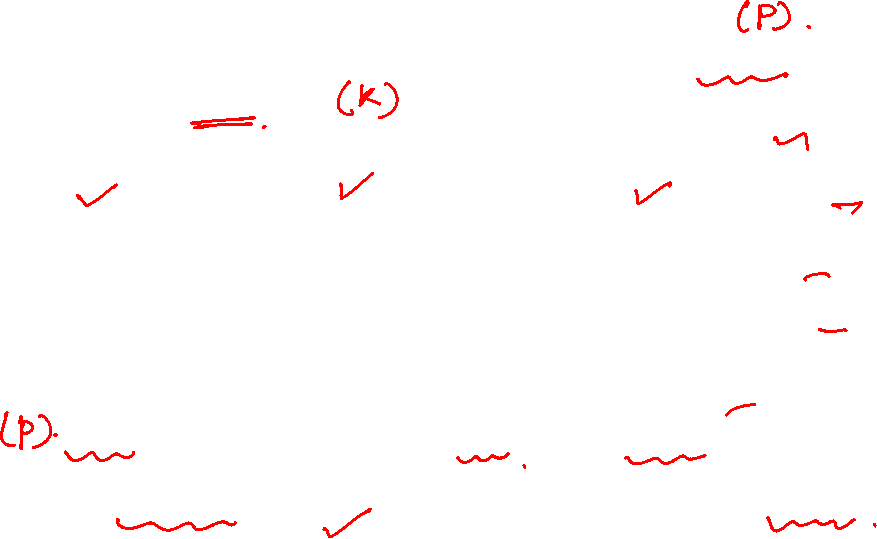 (P).
(K)
(P).